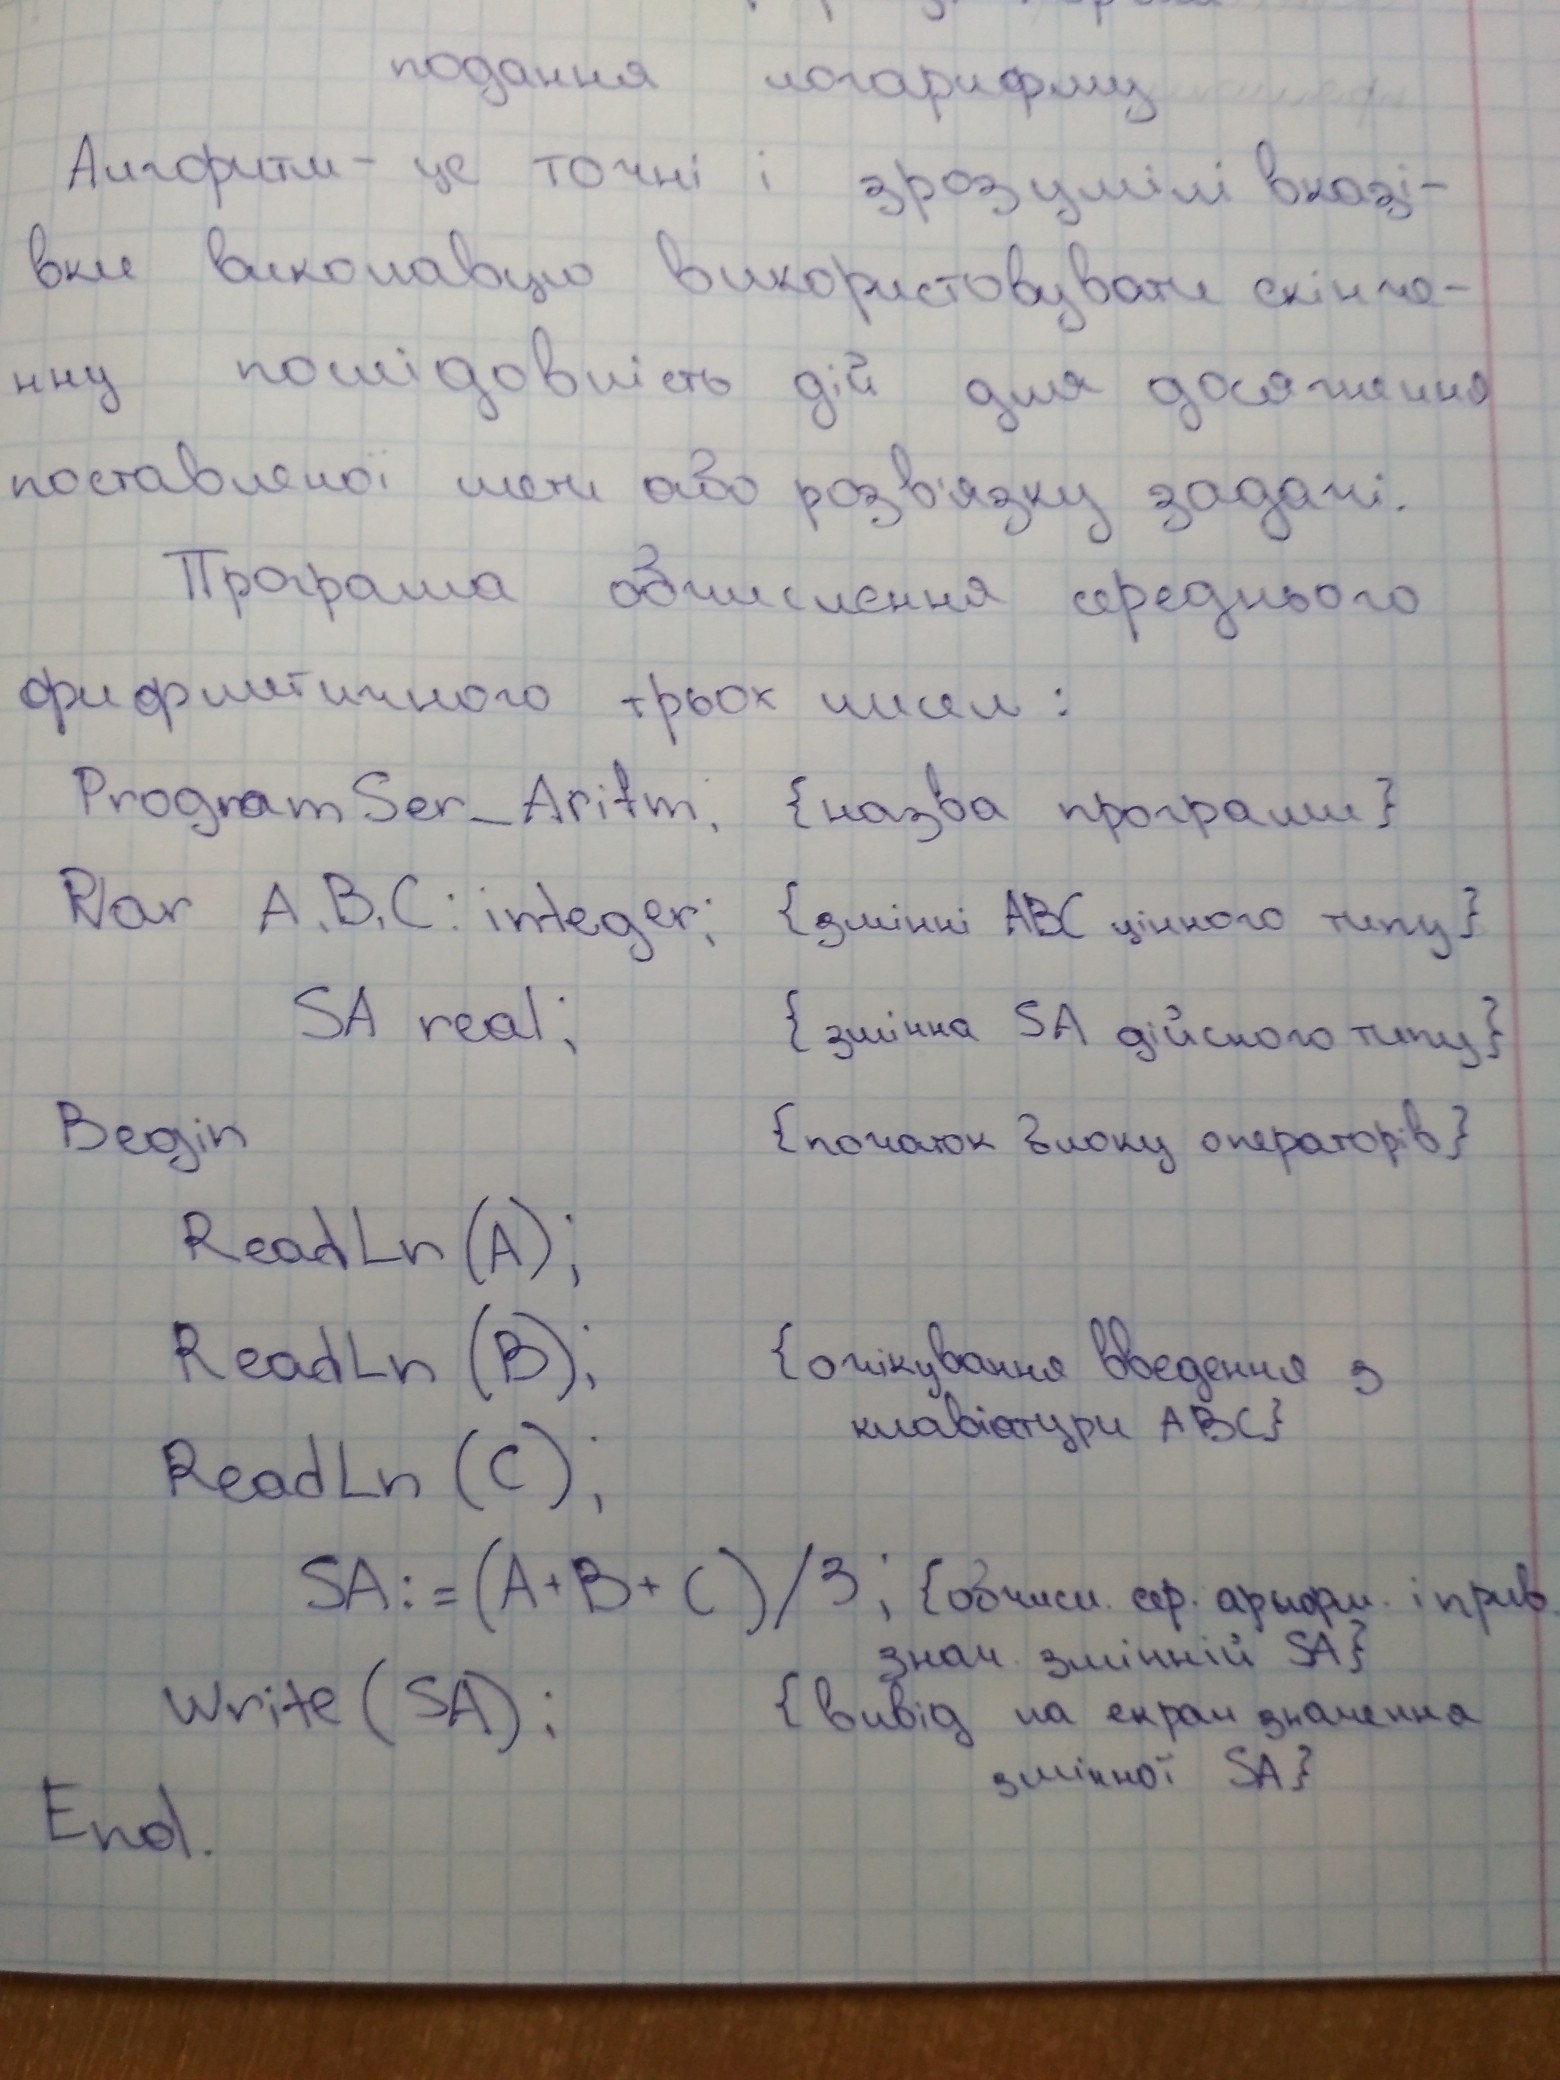 подання логарифму
Алгоритм - це точні і зрозумілі вказі-
вки виконавцю використовувати скінче-
нну послідовність дій для досягнення
поставленої мети або розв'язку задачі.
Програма обчислення середнього
арифметичного трьох чисел:
Program Ser_Aritm; {назва програми}
Var A,B,C: integer; {змінні ABC цінного типу}
SA real; {змінна SA дійсного типу}
Begin {початок блоку операторів}
ReadLn (A);
ReadLn (B); {очікування введення з
клавіатури ABC}
ReadLn (C);
SA:=(A+B+C)/3; {обчисл. сер. арифм. і прив.
знач. змінній SA}
Write (SA); {вивід на екран значення
змінної SA}
End.